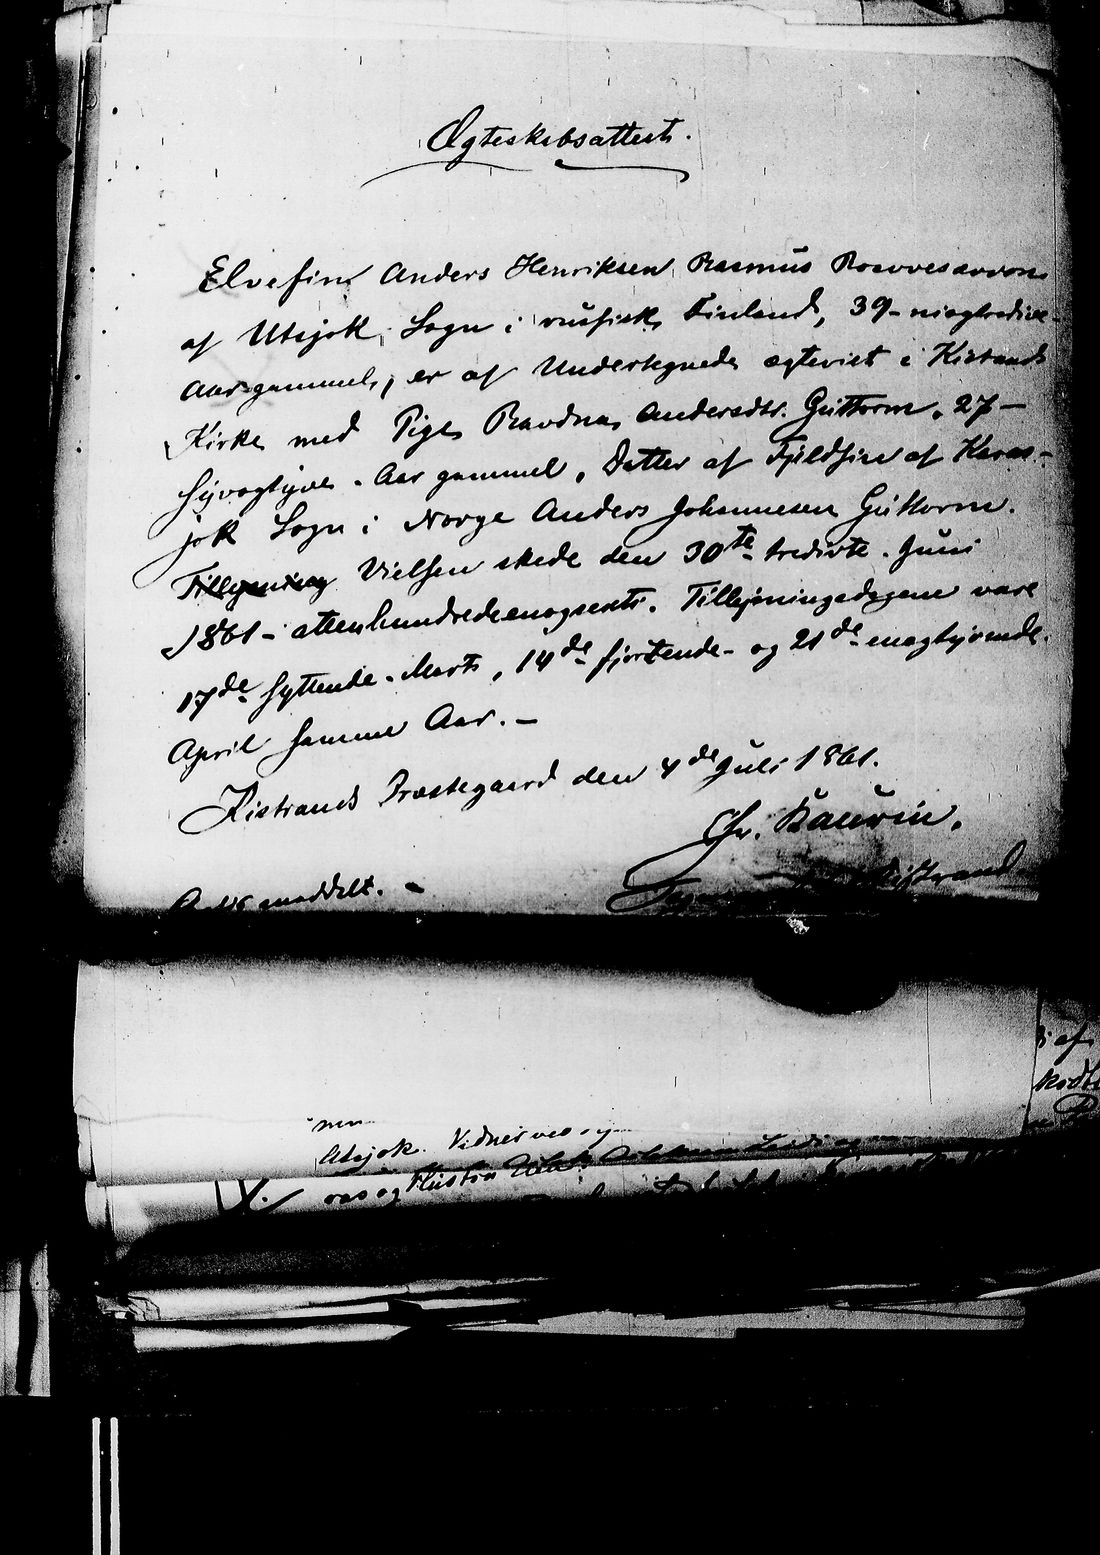 Ægteskabsattest.
Elvefin Anders Henriksen Rasmus
af Utsjok Sogn i russisk Finland, 39 - niogtredive -
Aar gammel, er af Undertegnede ægteviet i Kistrands
Kirke med Pige Ravdna Andersdtr. Guttorm, 27 -
syvogtyve - Aar gammel, Datter af Fjeldfin af Karas-
jok Sogn i Norge Anders Johannesen Guttorm.
Vielsen skede den 30te tredivte - Juni
1861 - attenhundredeenogsexti. Tillysningsdagene vare
17de syttende - Marts, 14de fjortende - og 21de - enogtyvende -
April samme Aar. -
Kistrands Præstegaard den 4de Juli 1861.
Chr. Baurin.
meddelt. -
Kistrand
Utsjok. Vidnes ved
og Hustru